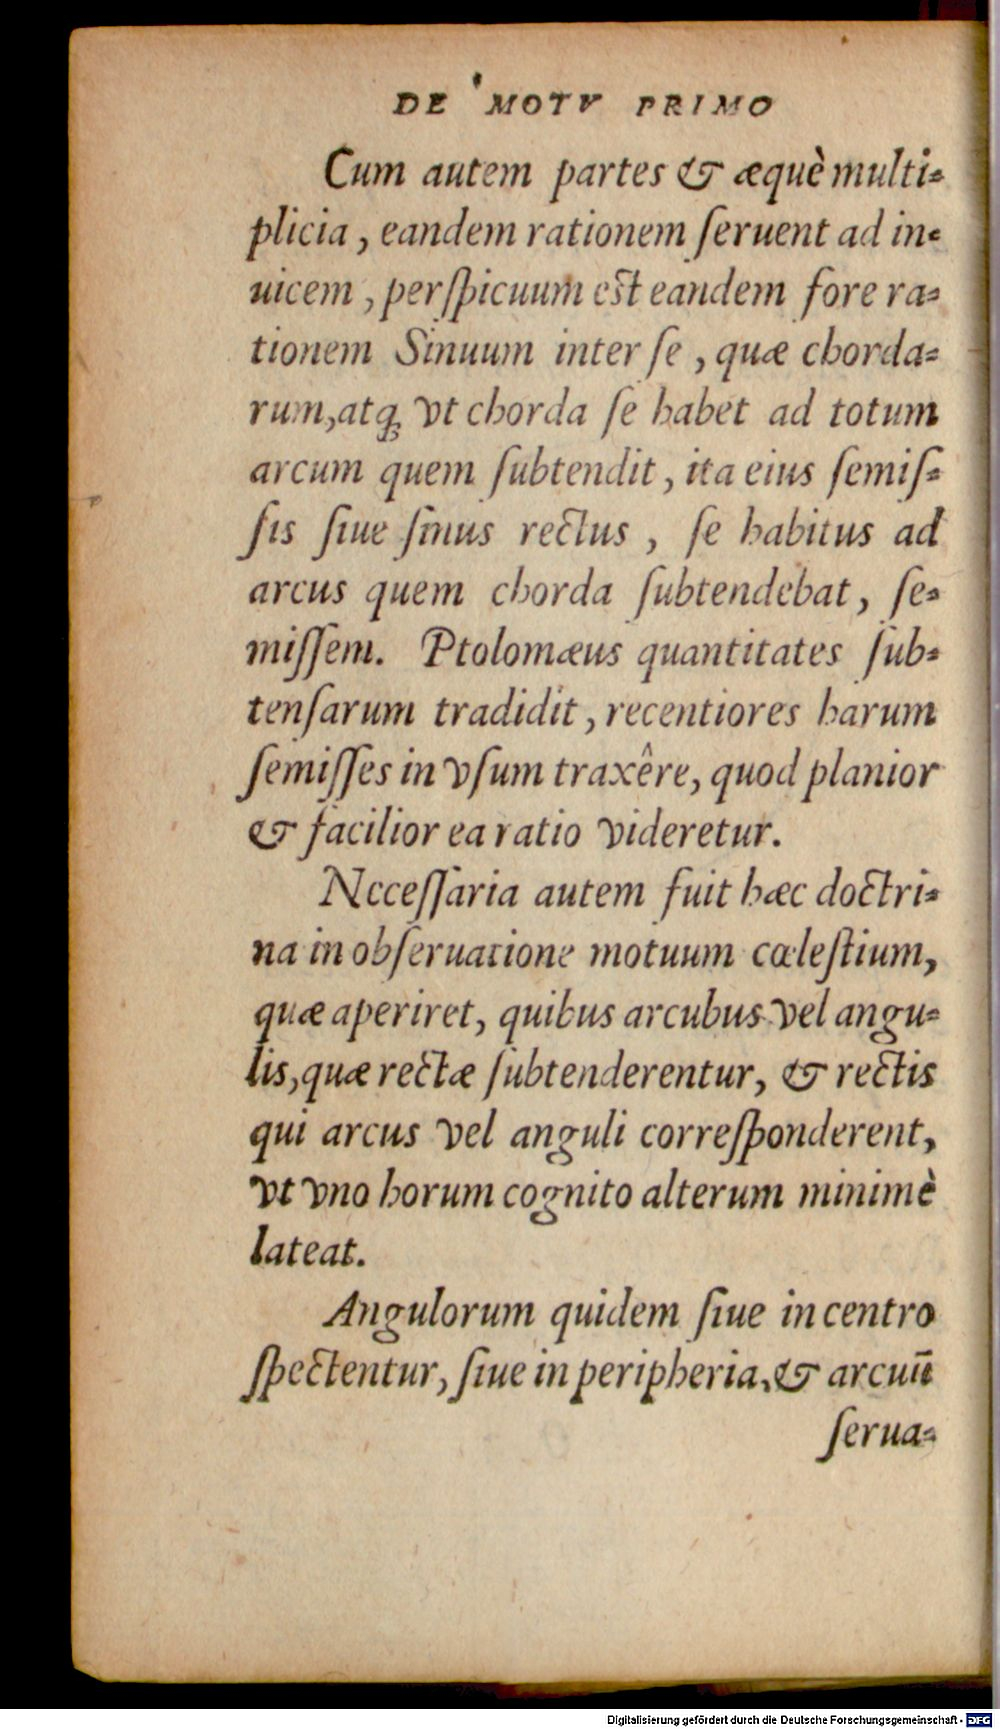 DE MOTV PRIMO
Cum autem partes & æquè multi-
plicia, eandem rationem ſeruent ad in-
uicem, perſpicuum est eandem fore ra-
tionem Sinuum inter ſe, quæ chorda-
rum, atq; vt chorda ſe habet ad totum
arcum quem ſubtendit, ita eius ſemiſ-
ſis ſiue ſinus rectus, ſe habitus ad
arcus quem chorda ſubtendebat, ſe-
miſſem. Ptolomæus quantitates ſub-
tenſarum tradidit, recentiores harum
ſemiſſes in vſum traxêre, quod planior
& facilior ea ratio videretur.
Neceſſaria autem fuit hæc doctri-
na in obſeruatione motuum cœleſtium,
quæ aperiret, quibus arcubus vel angu-
lis, quæ rectæ ſubtenderentur, & rectis
qui arcus vel anguli correſponderent,
vt vno horum cognito alterum minimè
lateat.
Angulorum quidem ſiue in centro
ſpectentur, ſiue in peripheria, & arcuū
ſerua-
Digitalisierung gefördert durch die Deutsche Forschungsgemeinschaft - DFG